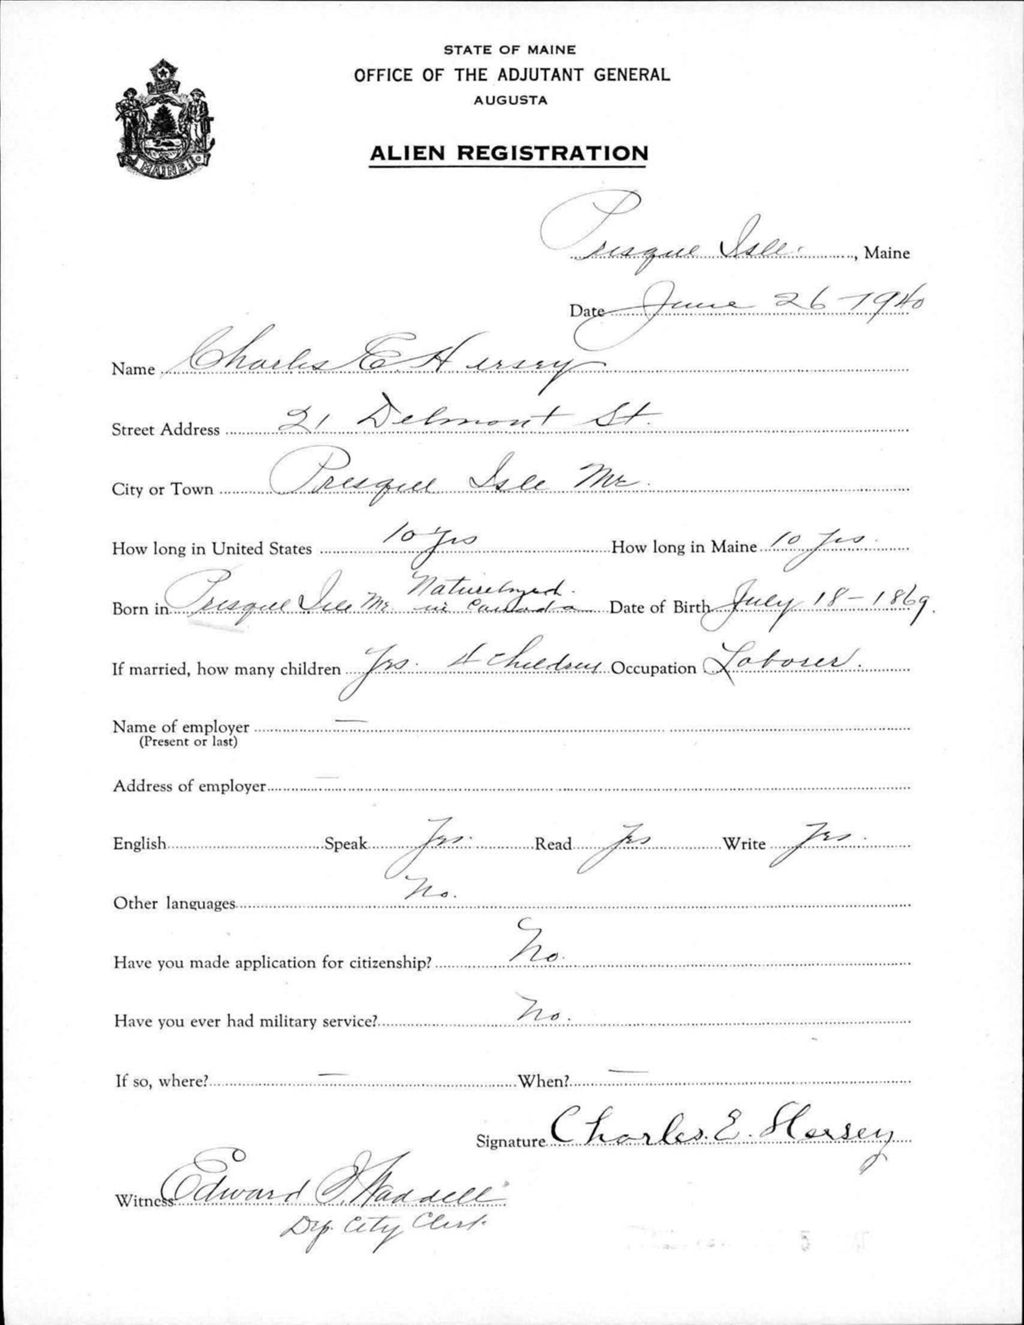 STATE OF MAINE
OFFICE OF THE ADJUTANT GENERAL
AUGUSTA
ALIEN REGISTRATION
MAINE
Presque Isle, Maine
Date June 26 - 1940
Name Charles E. Hersey
Street Address 21 Delmont St.
City or Town Presque Isle Me.
How long in United States 10 yrs How long in Maine 10 yrs.
Born in Presque Isle Me. Naturelized in Canada Date of Birth July 18 - 1869.
If married, how many children Yes. 4 Children Occupation Laborer.
Name of employer —
(Present or last)
Address of employer —
English Speak Yes. Read Yes Write Yes.
Other languages No.
Have you made application for citizenship? No.
Have you ever had military service? No.
If so, where? — When? —
Signature Charles. E. Hersey
Witness Edward J. Waddell
Dep. City Clerk.